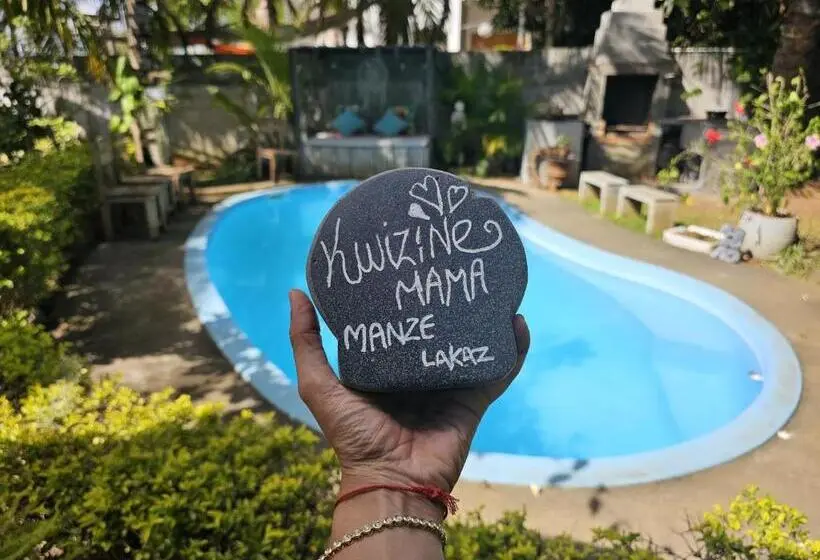 Kwizine
MAMA
MANZE
LAKAZ